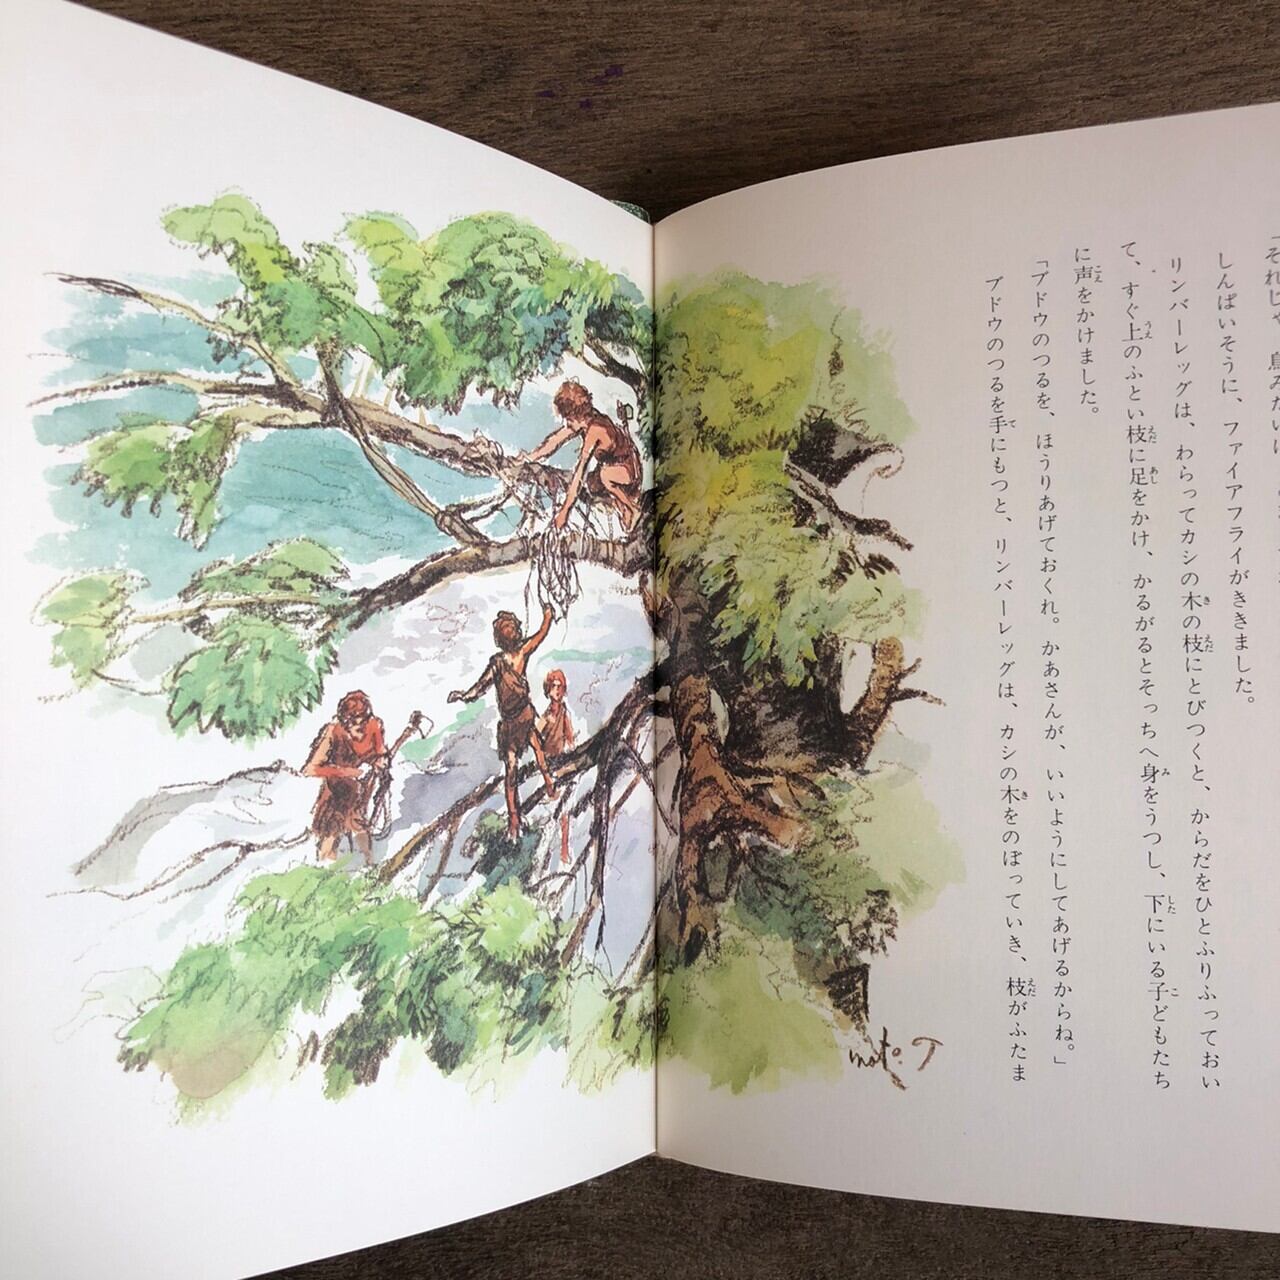 「それじゃ、鳥みたいに
しんぱいそうに、ファイアフライがききました。
リンバーレッグは、わらってカシの木の枝にとびつくと、からだをひとふりふっておい
て、すぐ上のふとい枝に足をかけ、かるがるとそっちへ身をうつし、下にいる子どもたち
に声をかけました。
「ブドウのつるを、ほうりあげておくれ。かあさんが、いいようにしてあげるからね。」
ブドウのつるを手にもつと、リンバーレッグは、カシの木をのぼっていき、枝がふたま
moto. T